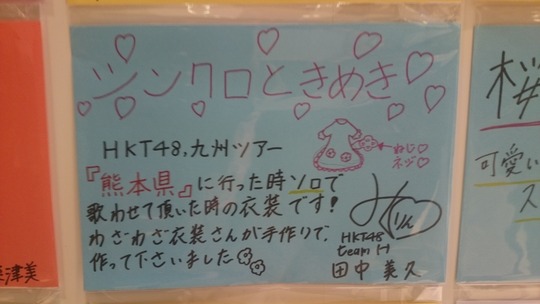 シンクロときめき
HKT48,九州ツアー
←ねじ♡
ネジ♡
『熊本県』に行った時ソロで
歌わせて頂いた時の衣装です!
わざわざ衣装さんが手作りで、
作って下さいました
HKT48
team H
田中 美久
桜
可愛い
ス
津美